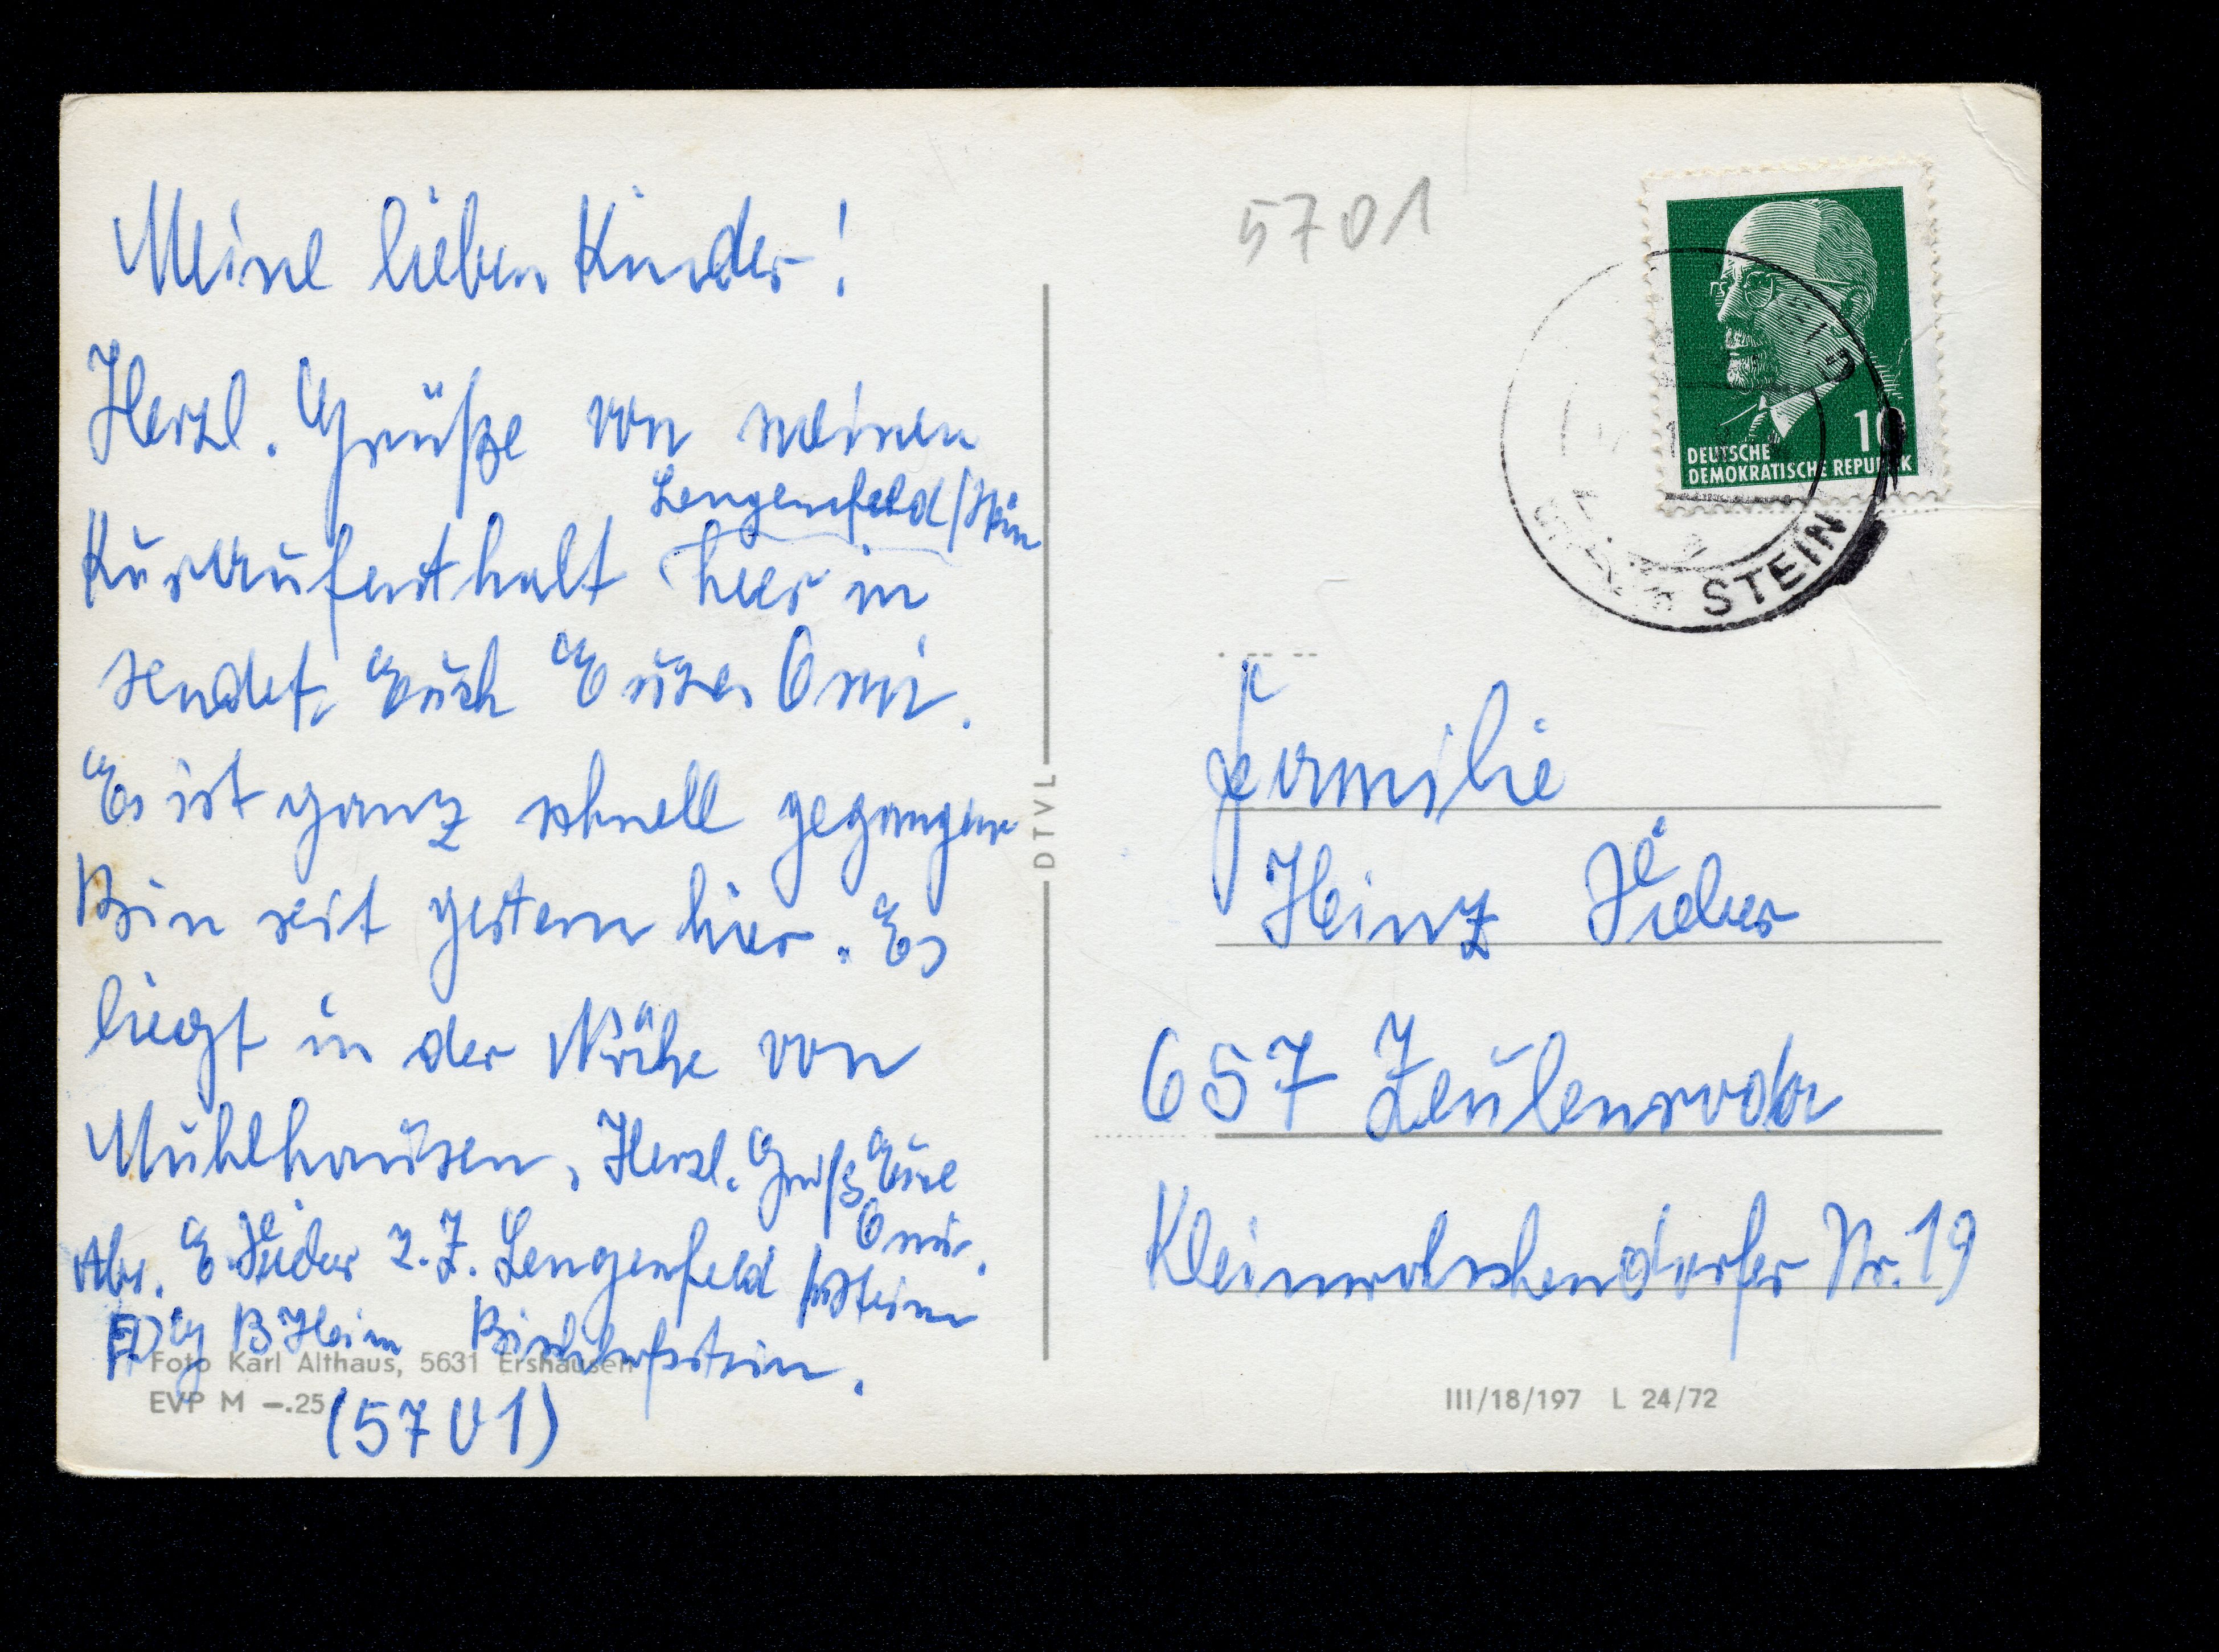 Meine lieben Kinder!
Herzl. Grüße von meinen
Lengenfeld/Stein
Kuraufenthalt hier in
sendet Euch Eure Omi.
Es ist ganz schnell gegangen
Bin seit gestern hier. Es
liegt in der Nähe von
Mühlhausen, Herzl. Gruß Eure
Omi.
Abs. E. z. Z. Lengenfeld /Stein
FDGB Heim Bischofstein.
Foto Karl Althaus, 5631 Ershausen
EVP M —.25
(5701)
DTVL
5701
10
DEUTSCHE
DEMOKRATISCHE REPUBLIK
STEIN
Familie
Heinz
657 Zeulenroda
Kleinwolschendorfer Nr. 19
III/18/197 L 24/72